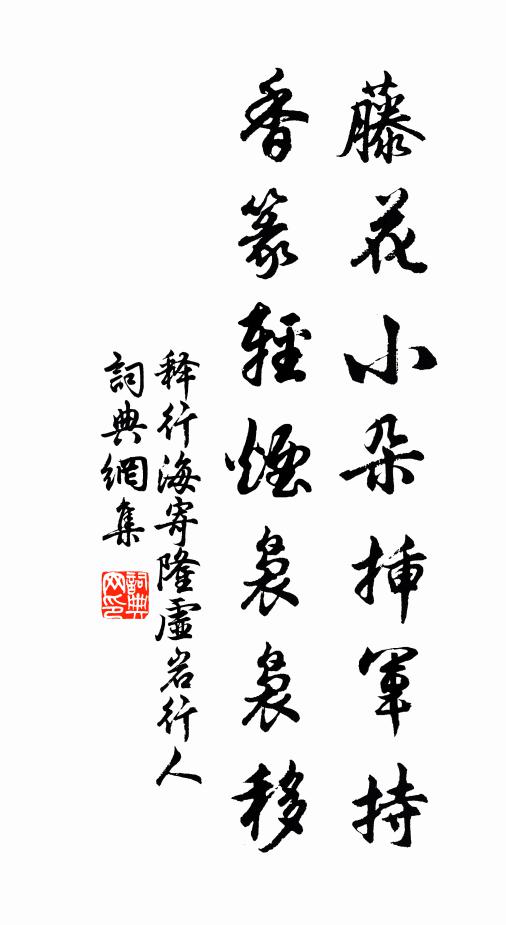 藤花小朵插軍持
香篆輕煙裊裊移
释行海寄隆虛岩行人
詞典網集
詞典網印